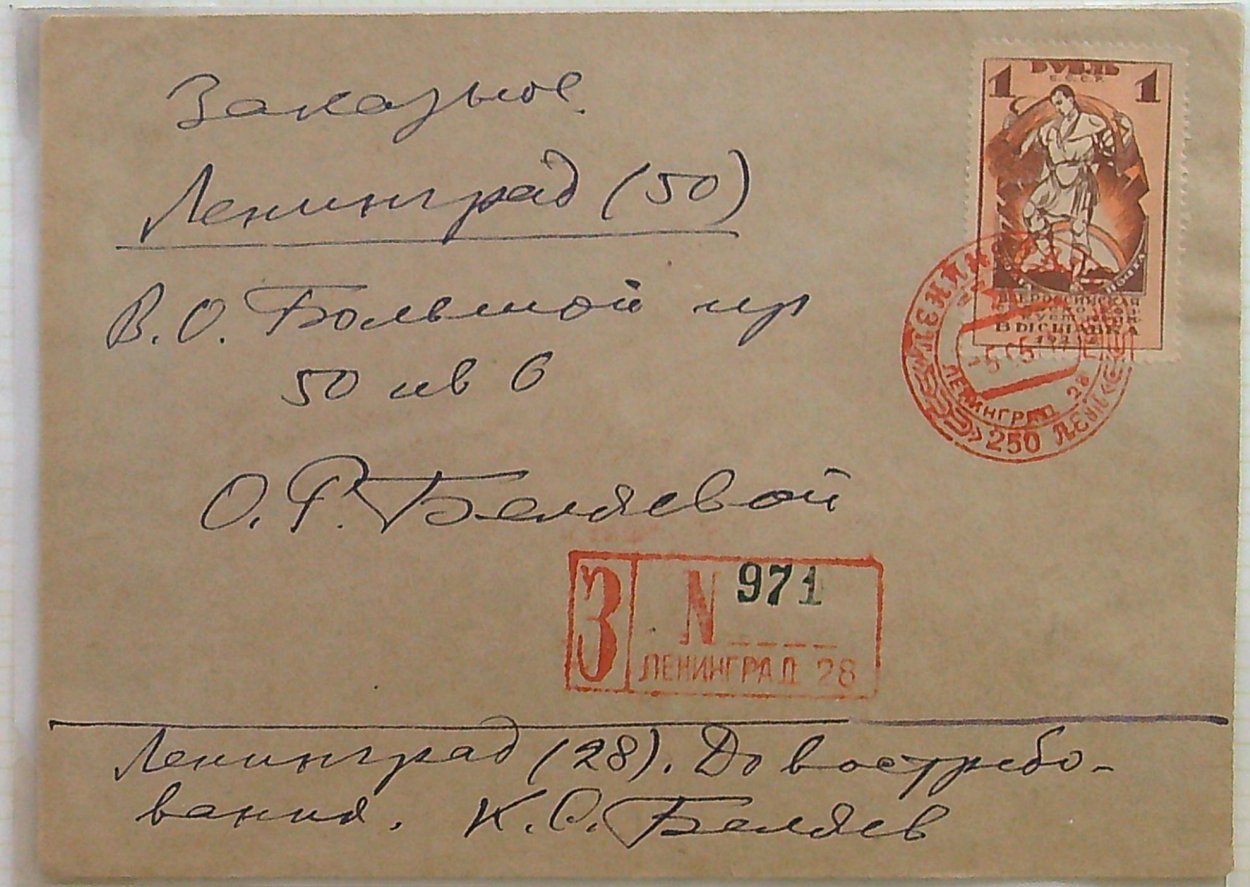 Заказное.
Ленинград (50)
В.О. Большой пр
50 кв 6
О.Р. Беляевой
1 РУБЛЬ 1
С.С.С.Р.
ВСЕРОССИЙСКАЯ
ВЫСТАВКА
250 ЛЕТ
ЛЕНИНГРАД 28
З N 971
ЛЕНИНГРАД 28
Ленинград (28). До востребо-
вания. К.О. Беляев